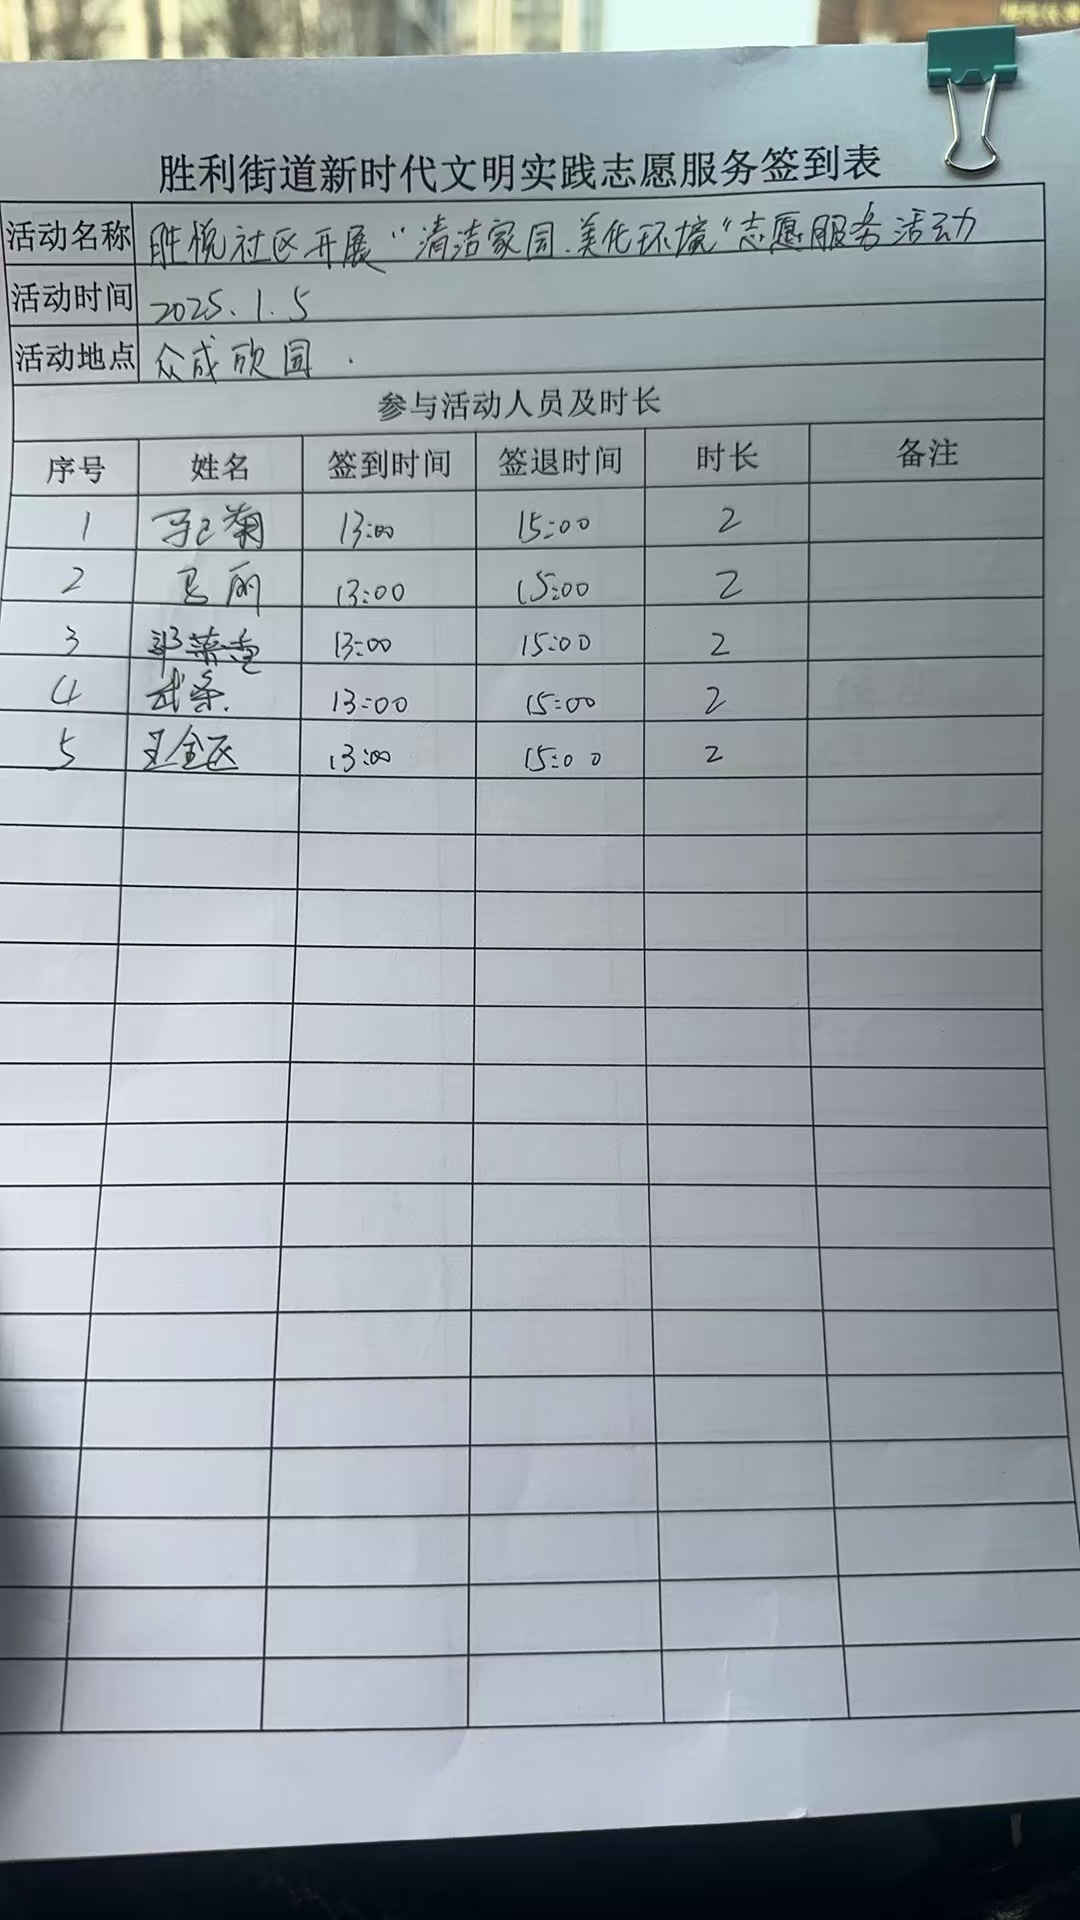 胜利街道新时代文明实践志愿服务签到表
活动名称 胜悦社区开展“清洁家园.美化环境”志愿服务活动
活动时间 2025.1.5
活动地点 众成欣园.
参与活动人员及时长
序号 姓名 签到时间 签退时间 时长 备注
1 13:00 15:00 2
2 马丽 13:00 15:00 2
3 13:00 15:00 2
4 13:00 15:00 2
5 13:00 15:00 2